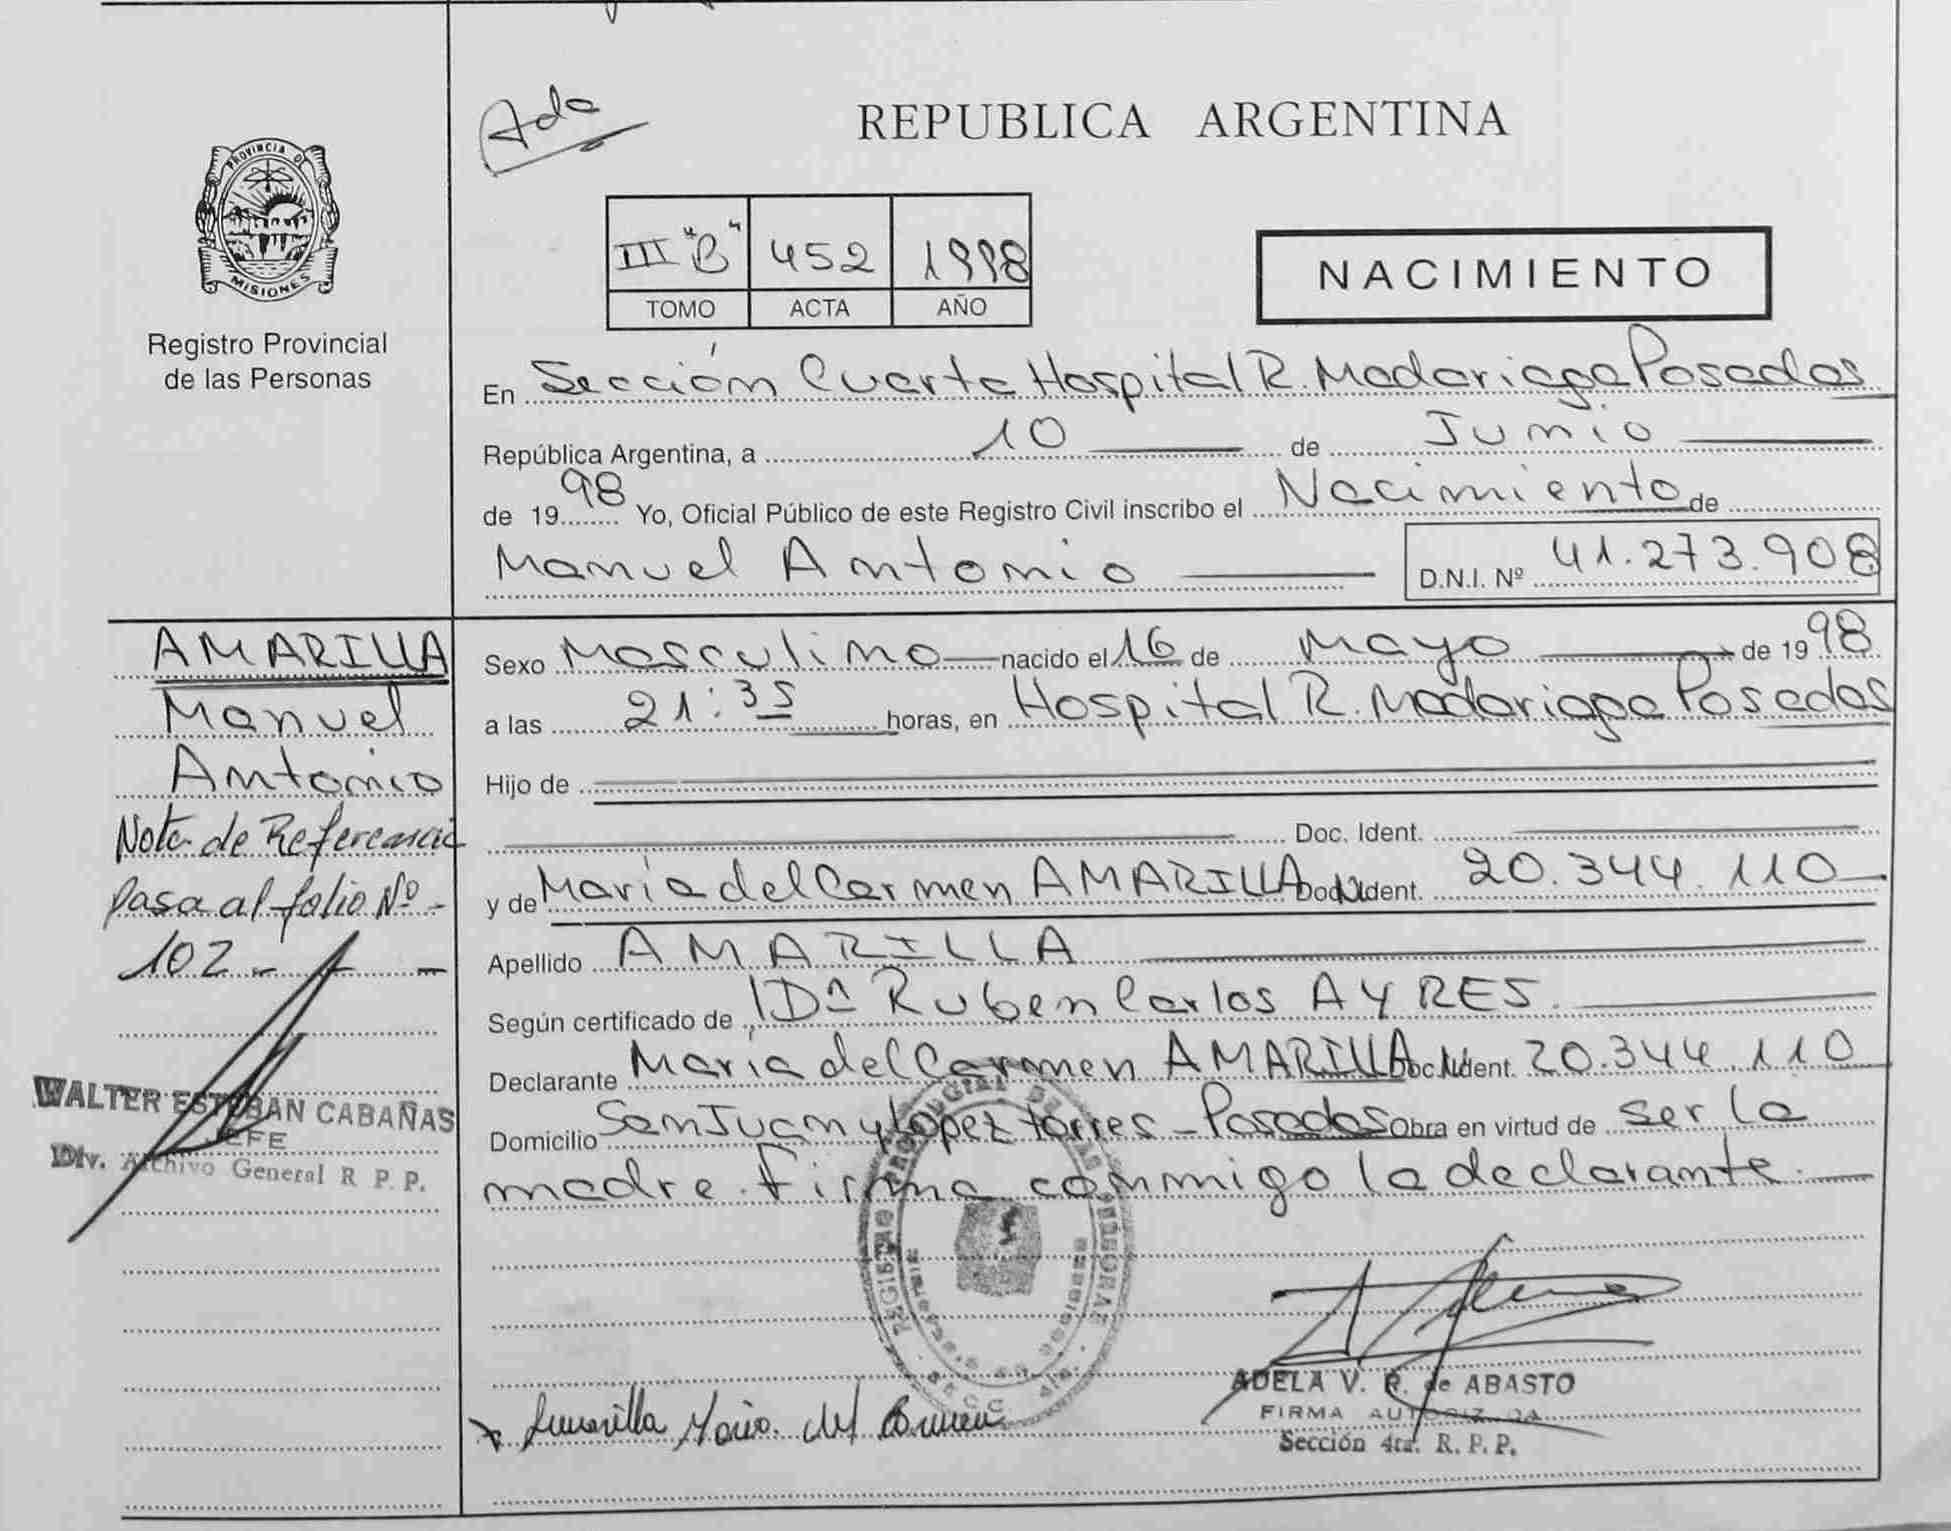 Ada
REPUBLICA ARGENTINA
PROVINCIA DE
MISIONES
Registro Provincial
de las Personas
III "B" 452 1998
TOMO ACTA AÑO
NACIMIENTO
En Sección Cuarta Hospital R. Madariaga Posadas
República Argentina, a 10 de Junio
de 1998 Yo, Oficial Público de este Registro Civil inscribo el Nacimiento de
Manuel Antonio D.N.I. Nº 41.273.908
AMARILLA
Manuel
Antonio
Nota de Referencia
pasa al folio Nº -
102 -
WALTER ESTEBAN CABAÑAS
JEFE
Div. Archivo General R P. P.
Sexo Masculino nacido el 16 de Mayo de 1998
a las 21:35 horas, en Hospital R. Madariaga Posadas
Hijo de
Doc. Ident.
y de María del Carmen AMARILLA Doc. Ident. 20.344.110
Apellido AMARILLA
Según certificado de Ruben Carlos AYRES.
Declarante María del Carmen AMARILLA Doc. Ident. 20.344.110
Domicilio San Juan y Lopez torres - Posadas Obra en virtud de ser la
madre. Firma conmigo la declarante.
Amarilla María del Carmen
ADELA V. R. de ABASTO
FIRMA AUTORIZADA
Sección 4ta. R. P. P.